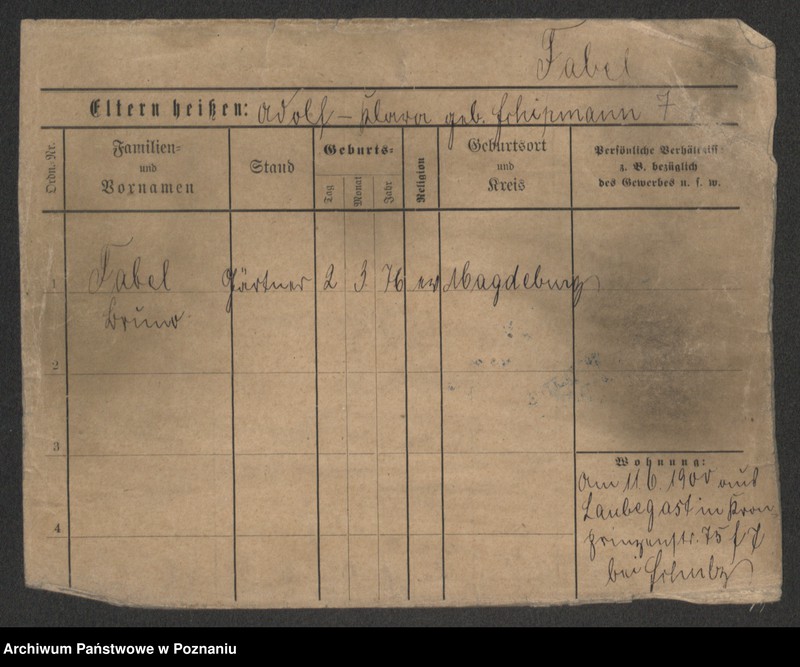 Fabel
Eltern heißen: Adolf – Klara geb. Schipmann 7
Ordn.-Nr.
Familien- und Vornamen
Stand
Geburts-
Tag
Monat
Jahr
Religion
Geburtsort und Kreis
Persönliche Verhältniss: z. B. bezüglich des Gewerbes u. s. w.
1 Fabel Gärtner 2 3 76 ev Magdeburg
Bruno
2
3
4
Wohnung:
Am 11.6.1900 aus
Laubegast in Kron
prinzenstr. 75
bei
Archiwum Państwowe w Poznaniu